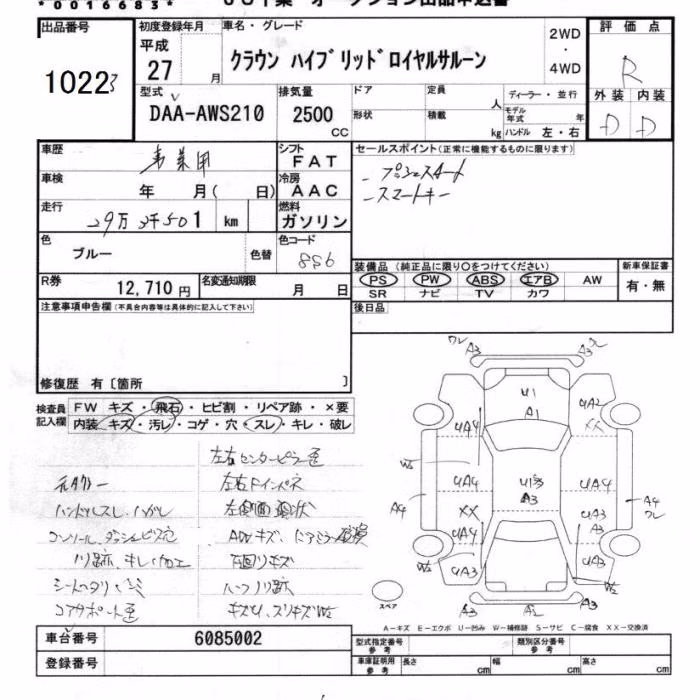 *0016683*
出品番号 初度登録年月 車名・グレード 評価点
10223 平成 27 月 クラウン ハイブリッドロイヤルサルーン 2WD・4WD R
型式 排気量 ドア 定員 人 ディーラー・並行 外装 内装
DAA-AWS210 2500 CC 形状 積載 kg モデル年式 年 ハンドル 左・右 D D
車歴 事業用 シフト FAT セールスポイント(正常に機能するものに限ります)
車検 年 月( 日) 冷房 AAC -プッシュスタート
走行 29万3千501 km 燃料 ガソリン -スマートキー
色 ブルー 色替 色コード 8S6
装備品(純正品に限り○をつけてください) 新車保証書
R券 12,710円 名変通知期限 月 日 PS PW ABS エアB AW 有・無
SR ナビ TV カワ
注意事項申告欄(不具合内容等は具体的に記入して下さい) 後日品
修復歴 有〔箇所 〕
検査員記入欄 FW キズ・飛石・ヒビ割・リペア跡・×要
内装・キズ・汚レ・コゲ・穴・スレ・キレ・破レ
左右センターピラー歪
元タクシー 左右ドインパネ
ハンドルスレ・ハガレ
コンソール、ダッシュビス穴
ノリ跡、キレ、加工 下回リキズ
ノリ跡
コアサポート歪 キズU、スリキズW2
ワレ A3 A3
U1 A1 UA2 XX
UA4 W2 UA4 U1 A3 UA4
A4 XX UA3 A3 A4 ワレ
UA4 W2 UA3 UA3 W2
スペア A3 A2 A3
A-キズ E-エクボ U-凹み W-補修跡 S-サビ C-腐食 XX-交換済
車台番号 6085002 型式指定番号 参考 類別区分番号 参考
登録番号 車庫証明用 参考 長さ cm 幅 cm 高さ cm